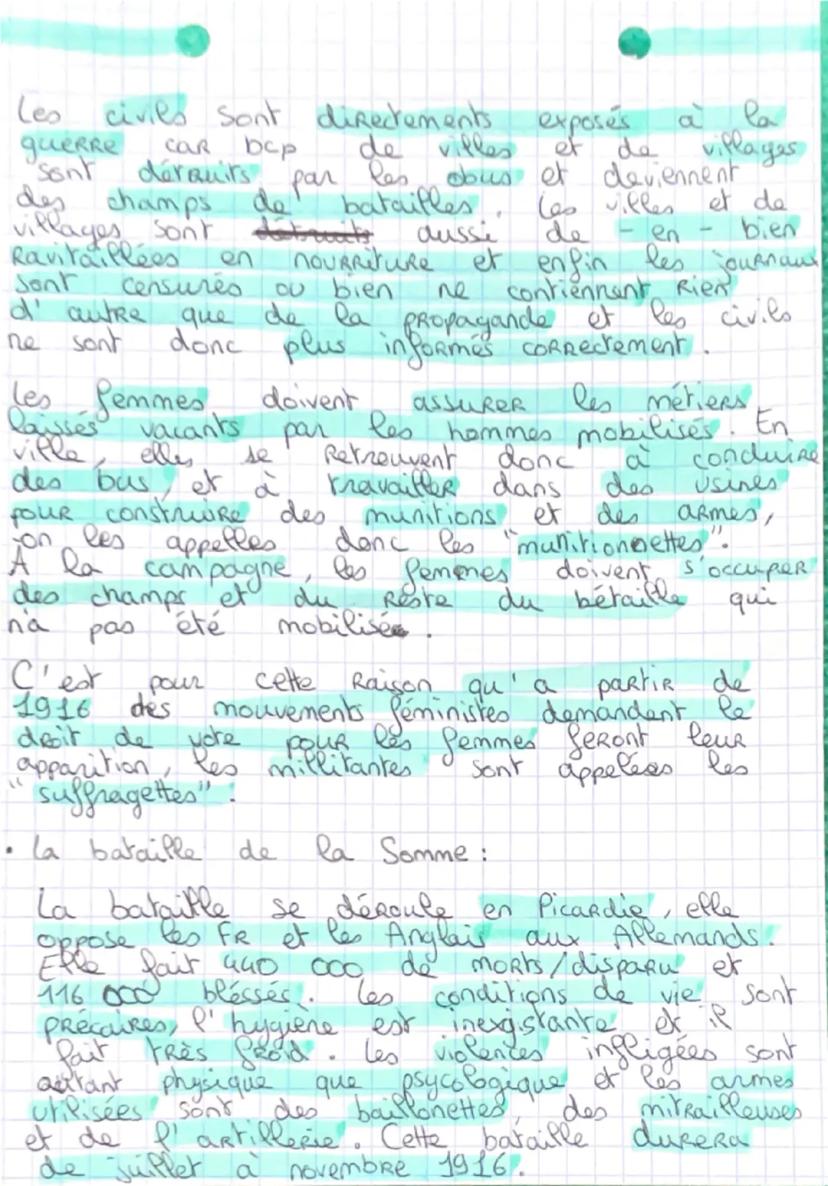 Les civils sont directements exposés à la
guerre car bcp de villes et de villages
sont détruits par les obus et deviennent
des champs de batailles. Les villes et de
villages sont détruits aussi de - en - bien
Ravitaillées en nourriture et enfin les journaux
sont censurés ou bien ne contiennent rien
d'autre que de la propagande et les civils
ne sont donc plus informés correctement.
Les femmes doivent assurer les métiers
laissés vacants par les hommes mobilisés. En
ville, elles se retrouvent donc à conduire
des bus, et à travailler dans des usines
pour construire des munitions et des armes,
on les appelles donc les "munitionettes".
A la campagne, les femmes doivent s'occuper
des champs et du reste du bétaille qui
n'a pas été mobilisé.
C'est pour cette raison qu'a partir de
1916 des mouvements féministes demandant le
droit de vote pour les femmes feront leur
apparition, les millitantes sont appelées les
"suffragettes".
• La bataille de la Somme :
La bataille se déroule en Picardie, elle
oppose les FR et les Anglais aux Allemands.
Elle fait 440 000 de morts/disparu et
116 000 bléssés. Les conditions de vie sont
précaires, l'hygiène est inexistante et il
fait très froid. Les violences infligées sont
autant physique que psycologique et les armes
utilisées sont des baillonettes, des mitrailleuses
et de l'artillerie. Cette bataille durera
de juillet à novembre 1916.